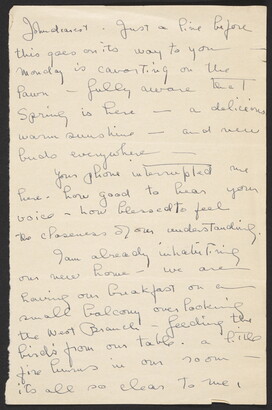 Johndearest. Just a line before
this goes on its way to you —
Monday is cavorting on the
lawn — fully aware that
Spring is here — a delicious
warm sunshine — and new
buds everywhere —
Your phone interrupted me
here. how good to hear your
voice — how blessed to feel
the closeness of our understanding.
I am already inhabiting
our new home — we are
having our breakfast on a
small balcony overlooking
the West Branch — feeding the
birds from our table. a little
fire burns in our room —
it's all so clear to me,